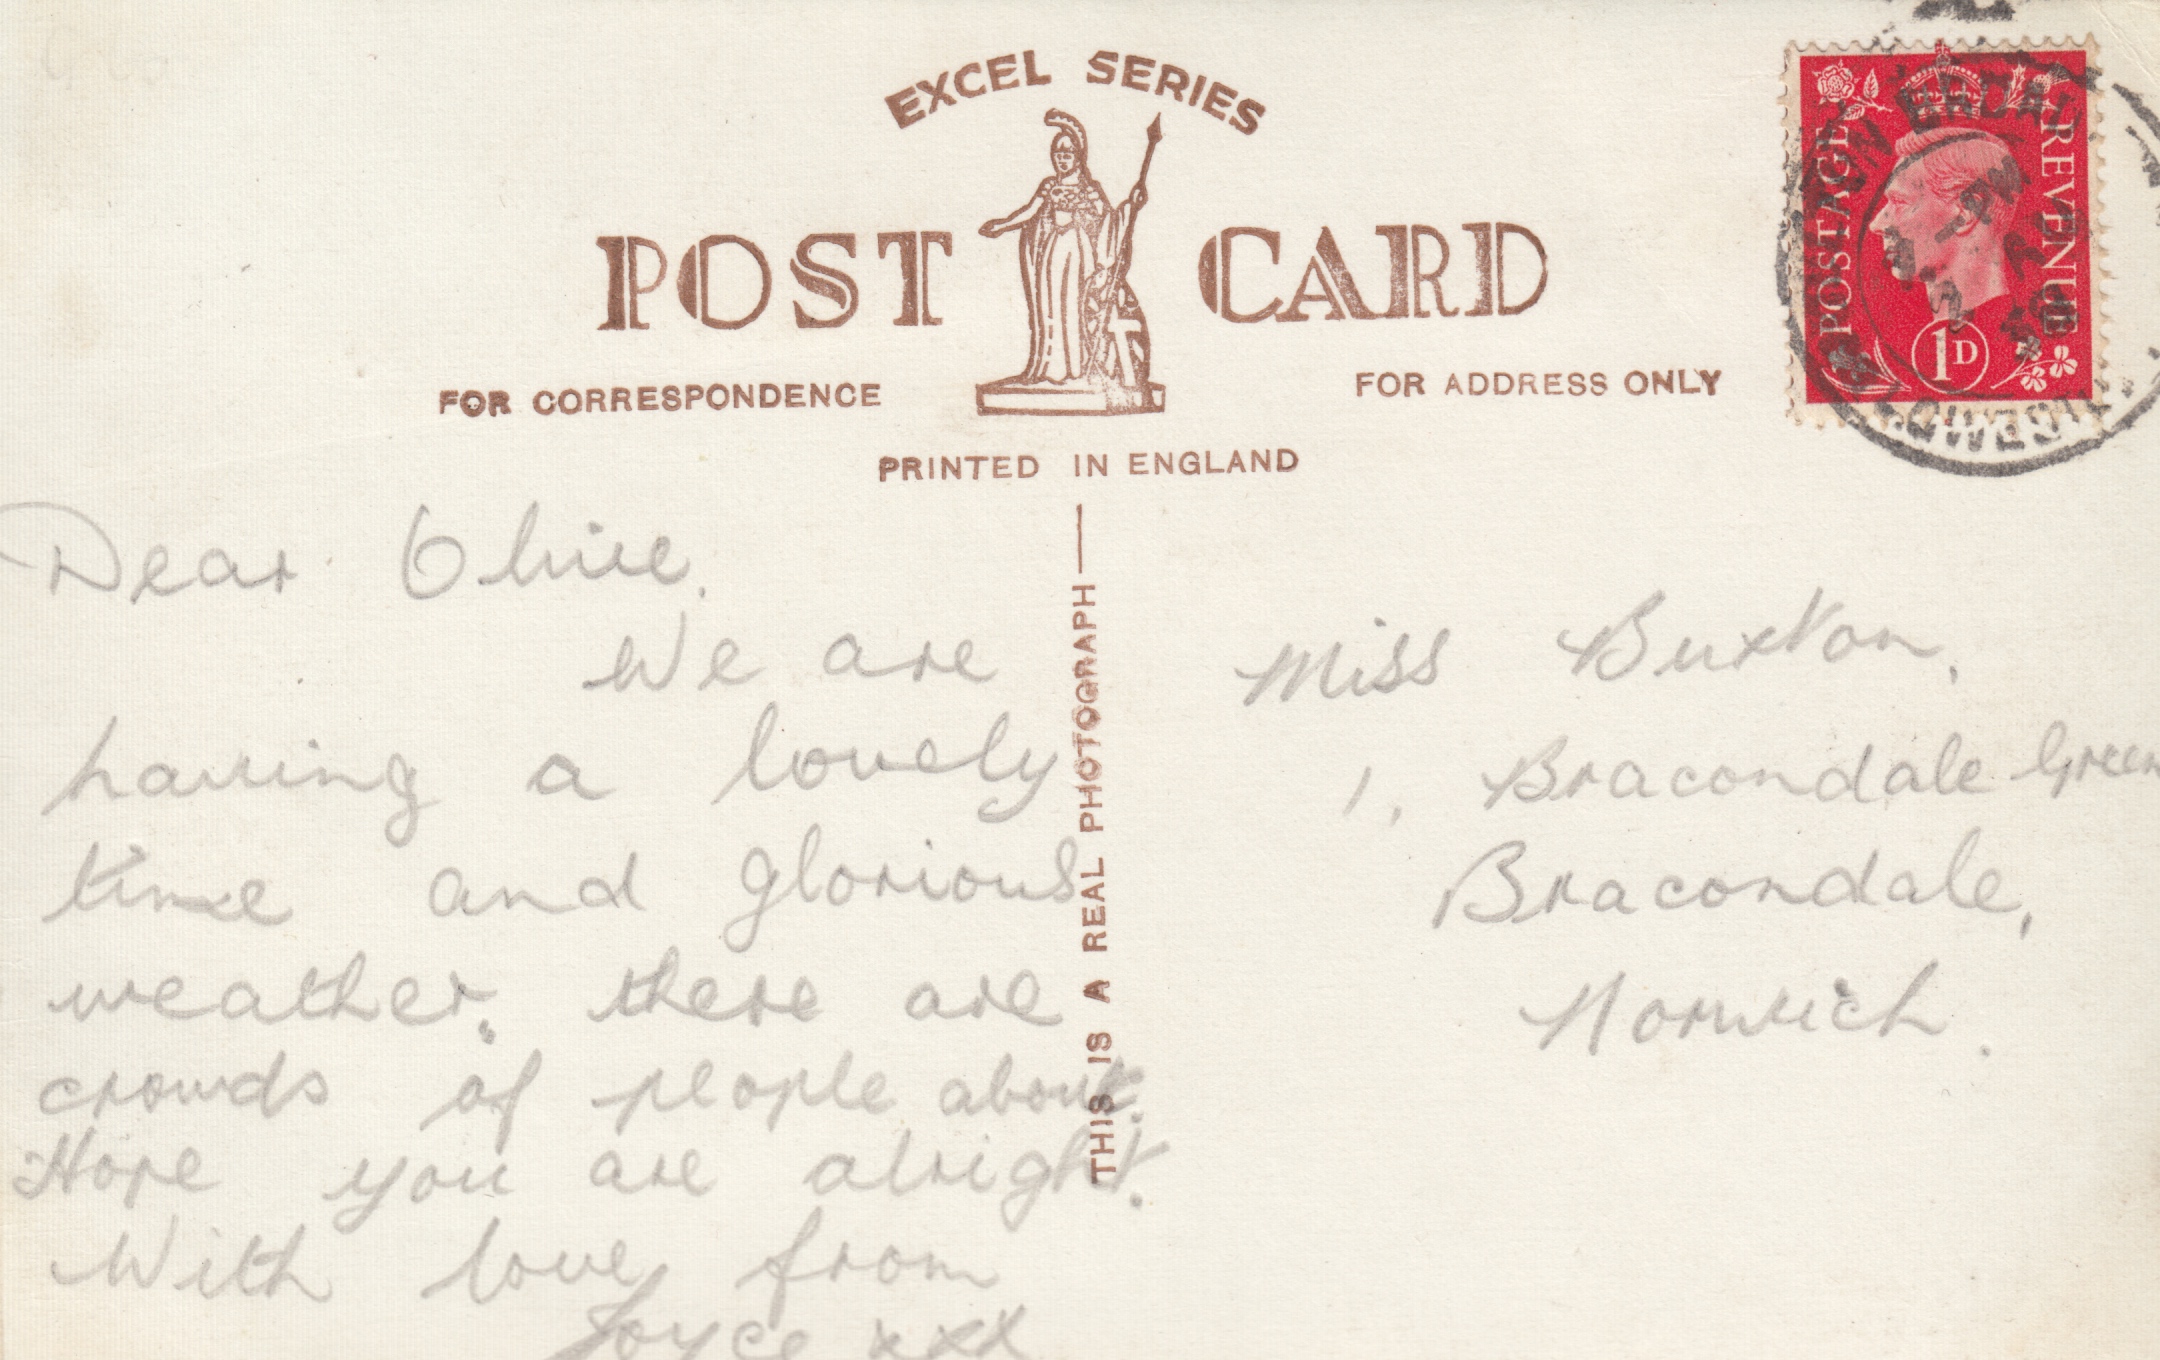 EXCEL SERIES
POST CARD
FOR CORRESPONDENCE
FOR ADDRESS ONLY
PRINTED IN ENGLAND
THIS IS A REAL PHOTOGRAPH
POSTAGE
REVENUE
1D
Dear Olive.
We are
having a lovely
time and glorious
weather, there are
crowds of people about.
Hope you are alright.
With love from
Joyce xxx
Miss Buxton,
1, Bracondale Green
Bracondale,
Norwich.